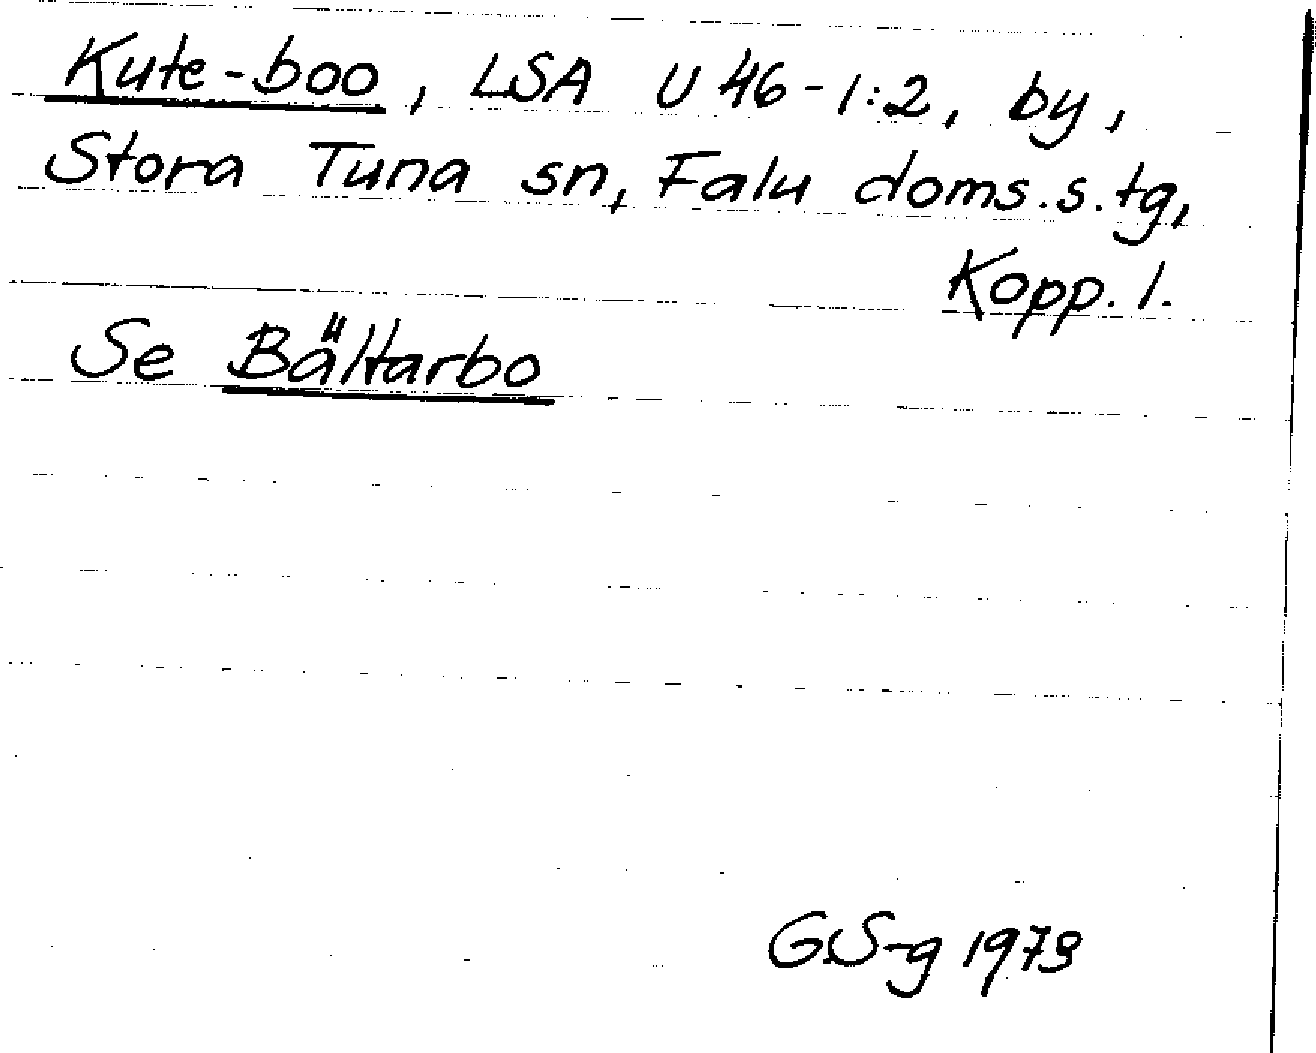 Kute-boo, LSA U 46-1:2, by,
Stora Tuna sn, Falu doms.s.tg,
Kopp. l.
Se Bältarbo
G.S-g 1973